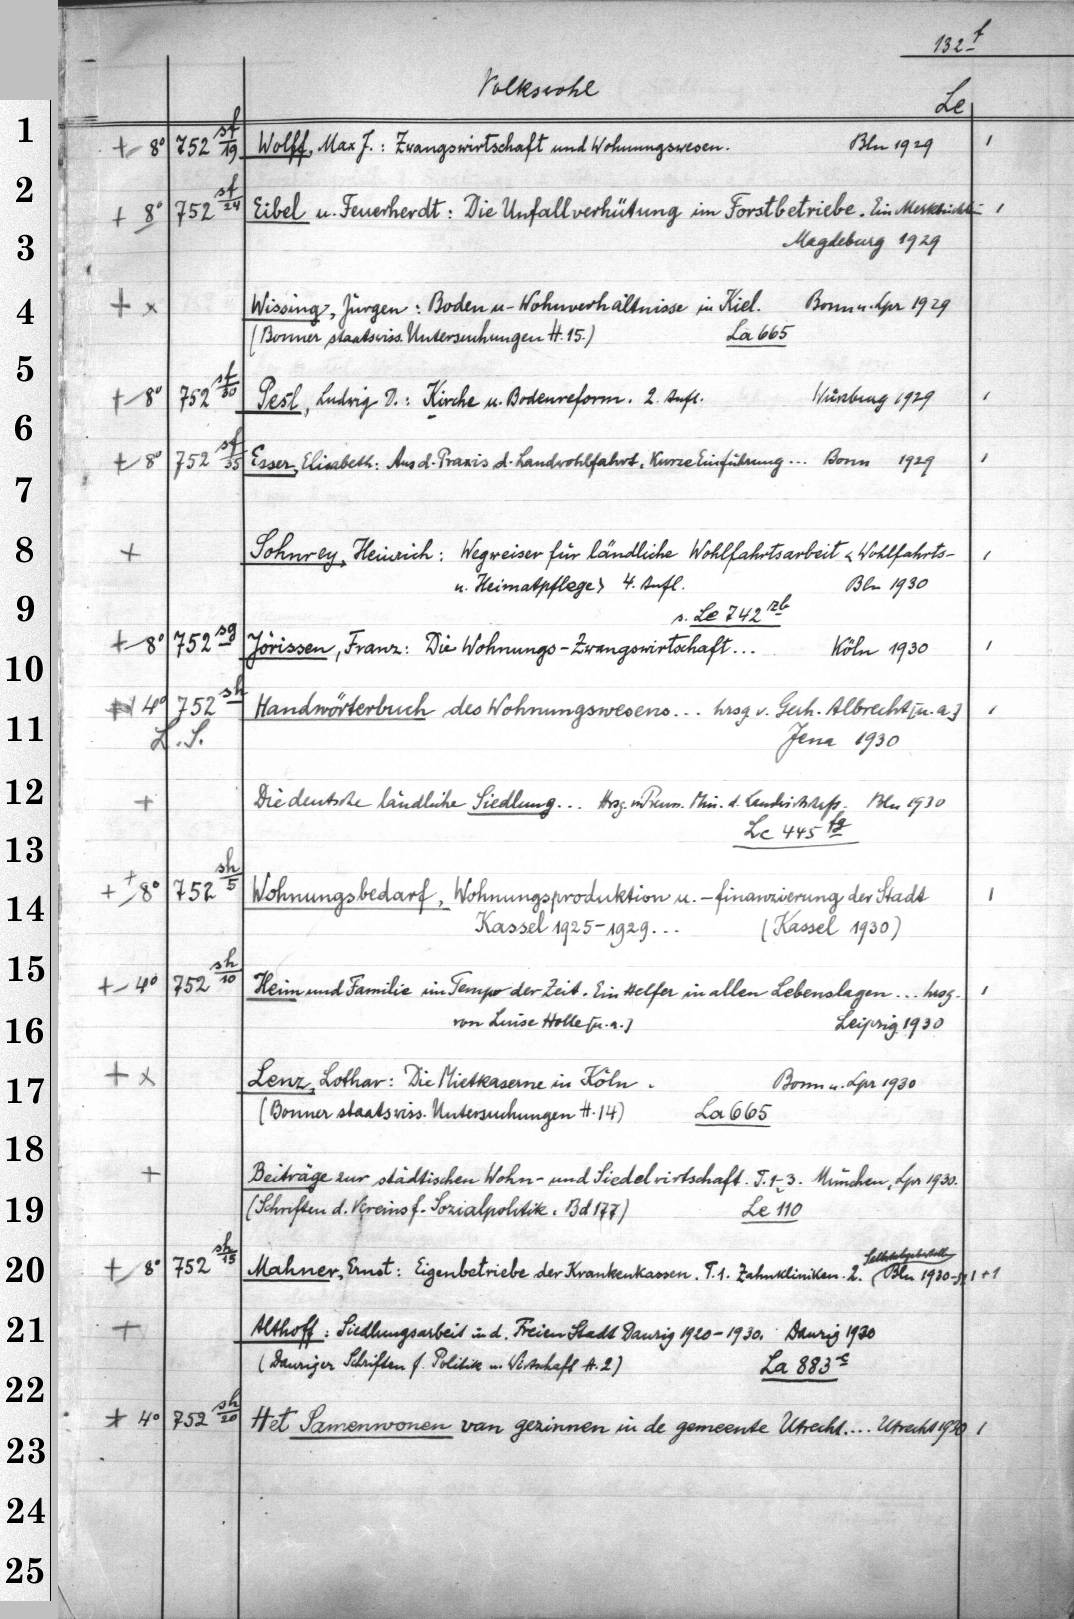 132 f
Volkswohl
Le
1 + 8° 752 sf/19 Wolff, Max J.: Zwangswirtschaft und Wohnungswesen. Bln 1929 1
2 + 8° 752 sf/24 Eibel u. Feuerherdt: Die Unfallverhütung im Forstbetriebe. Ein 1
3 Magdeburg 1929
4 + x Wissing, Jürgen: Boden u. Wohnverhältnisse in Kiel. Bonn u. Lpz 1929
(Bonner staatswiss. Untersuchungen H. 15.) La 665
5 + 8° 752 sf/30 Pesl, Ludwig D.: Kirche u. Bodenreform. 2. Aufl. Würzburg 1929 1
6
7 + 8° 752 sf/35 Esser, Elisabeth: Aus d. Praxis d. Landwohlfahrt. Kurze Einführung... Bonn 1929 1
8 + Sohnrey, Heinrich: Wegweiser für ländliche Wohlfahrtsarbeit < Wohlfahrts- 1
u. Heimatpflege> 4. Aufl. Bln 1930
9 s. Le 742 rb
10 + 8° 752 sg Jörissen, Franz: Die Wohnungs-Zwangswirtschaft... Köln 1930 1
4° 752 sh Handwörterbuch des Wohnungswesens... hrsg v. Gerh. Albrecht [u. a.] 1
11 L.S. Jena 1930
12 + Die deutsche ländliche Siedlung... Hrsg. v. Preuss. Min. d. Landwirtschaft. Bln 1930
13 Le 445 fg
14 + + 8° 752 sh/5 Wohnungsbedarf, Wohnungsproduktion u. -finanzierung der Stadt 1
Kassel 1925-1929... (Kassel 1930)
15 + 4° 752 sh/10 Heim und Familie im Tempo der Zeit. Ein Helfer in allen Lebenslagen... hrsg. 1
16 von Luise Holle [u. a.] Leipzig 1930
17 + x Lenz, Lothar: Die Mietkaserne in Köln. Bonn u. Lpz 1930
(Bonner staatswiss. Untersuchungen H. 14) La 665
18 + Beiträge zur städtischen Wohn- und Siedelwirtschaft. T. 1-3. München, Lpz 1930.
19 (Schriften d. Vereins f. Sozialpolitik. Bd 177) Le 110
20 + 8° 752 sh/15 Mahner, Ernst: Eigenbetriebe der Krankenkassen. T. 1. Zahnkliniken. 2. (Bln 1930- 1+1
21 + Althoff: Siedlungsarbeit in d. Freien Stadt Danzig 1920-1930. Danzig 1930
(Danziger Schriften f. Politik u. Wirtschaft H. 2) La 883 c
22 + 4° 752 sh/20 Het Samenwonen van gezinnen in de gemeente Utrecht.... Utrecht 1930 1
23
24
25